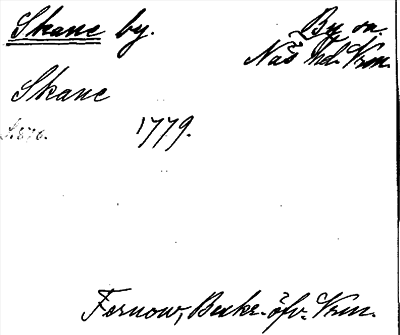 Skane by.
By sn.
Näs hd. Vrm.
Skane
1779.
Fernow, Beskr. öfv. Vrm.